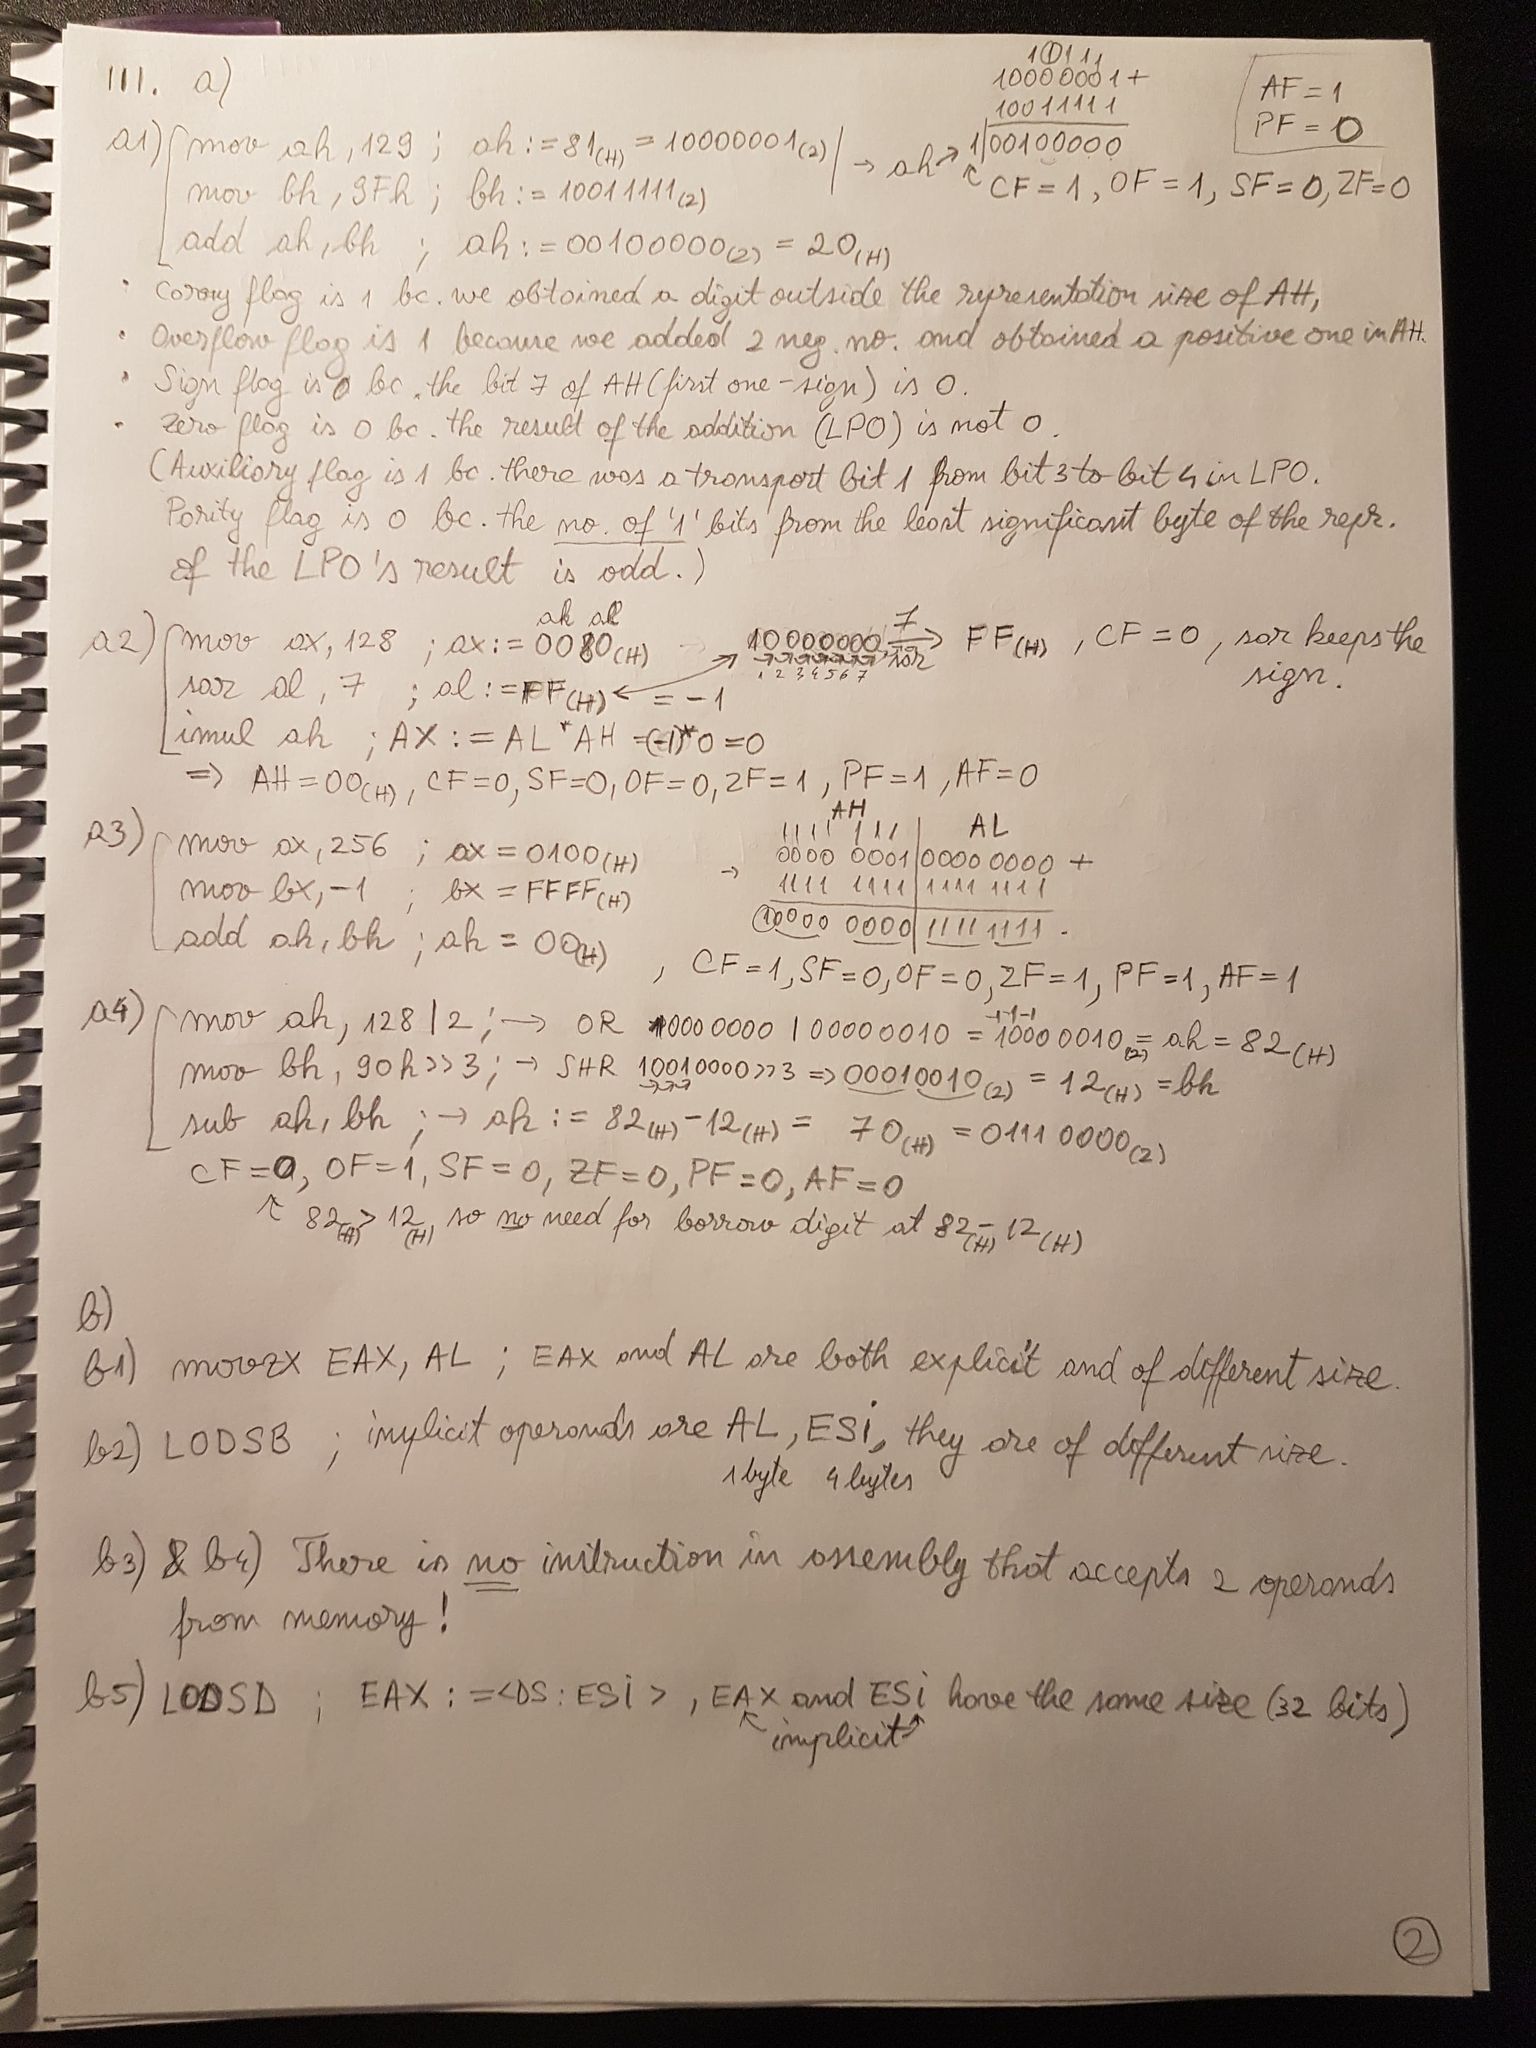 III. a)
1 0 1 1 1
10000001+
10011111
1|00100000
AF = 1
PF = 0
a1) mov ah, 129 ; ah := 81(H) = 10000001(2) → ah
mov bh, 9Fh ; bh := 10011111(2)
CF = 1, OF = 1, SF = 0, ZF = 0
add ah, bh ; ah := 00100000(2) = 20(H)
• Carry flag is 1 bc. we obtained a digit outside the representation size of AH,
• Overflow flag is 1 because we added 2 neg. no. and obtained a positive one in AH.
• Sign flag is 0 bc. the bit 7 of AH (first one - sign) is 0.
• Zero flag is 0 bc. the result of the addition (LPO) is not 0.
(Auxiliary flag is 1 bc. there was a transport bit 1 from bit 3 to bit 4 in LPO.
Parity flag is 0 bc. the no. of '1' bits from the least significant byte of the repr.
of the LPO's result is odd.)
ah al
a2) mov ax, 128 ; ax := 0080(H) → 10000000 7 sar → FF(H), CF = 0, sar keeps the
1 2 3 4 5 6 7
sign.
sar al, 7 ; al := FF(H) = -1
imul ah ; AX := AL * AH = (-1)*0 = 0
=> AH = 00(H), CF=0, SF=0, OF=0, ZF=1, PF=1, AF=0
AH AL
1111 111
a3) mov ax, 256 ; ax = 0100(H) → 0000 0001|0000 0000 +
mov bx, -1 ; bx = FFFF(H) 1111 1111|1111 1111
add ah, bh ; ah = 00(H) 10000 0000|1111 1111.
, CF=1, SF=0, OF=0, ZF=1, PF=1, AF=1
-1-1-1
a4) mov ah, 128 | 2 ; → OR 10000000 | 00000010 = 10000010(2) = ah = 82(H)
mov bh, 90h >> 3 ; → SHR 10010000 >> 3 => 00010010(2) = 12(H) = bh
sub ah, bh ; → ah := 82(H) - 12(H) = 70(H) = 0111 0000(2)
CF = 0, OF = 1, SF = 0, ZF = 0, PF = 0, AF = 0
82(H) > 12(H), so no need for borrow digit at 82(H) - 12(H)
b)
b1) movzx EAX, AL ; EAX and AL are both explicit and of different size.
b2) LODSB ; implicit operands are AL, ESI, they are of different size.
1 byte 4 bytes
b3) & b4) There is no instruction in assembly that accepts 2 operands
from memory!
b5) LODSD ; EAX := <DS : ESI>, EAX and ESI have the same size (32 bits)
implicit
2